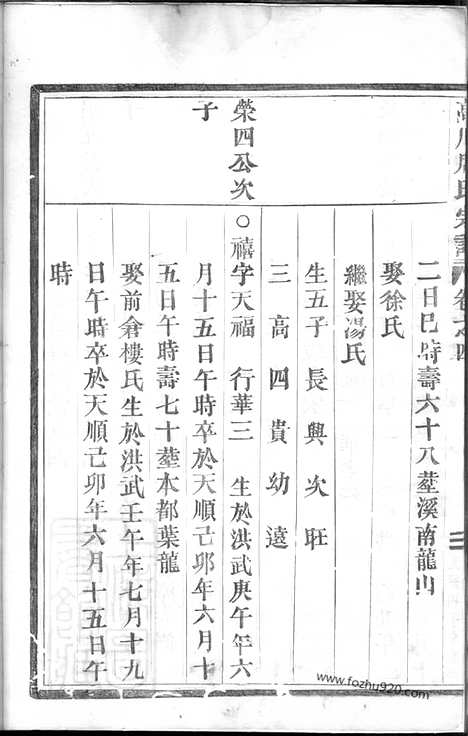 二日巳時壽六十八塟溪南龍山
娶徐氏
繼娶湯氏
生五子長興次旺
三高四貴幼遠
榮四公次
子
○禧字天福 行華三 生於洪武庚午年六
月十五日午時卒於天順己卯年六月十
五日午時壽七十塟本都葉龍
娶前倉樓氏生於洪武壬午年七月十九
日午時卒於天順己卯年六月十五日午
時
www.fozhu920.com